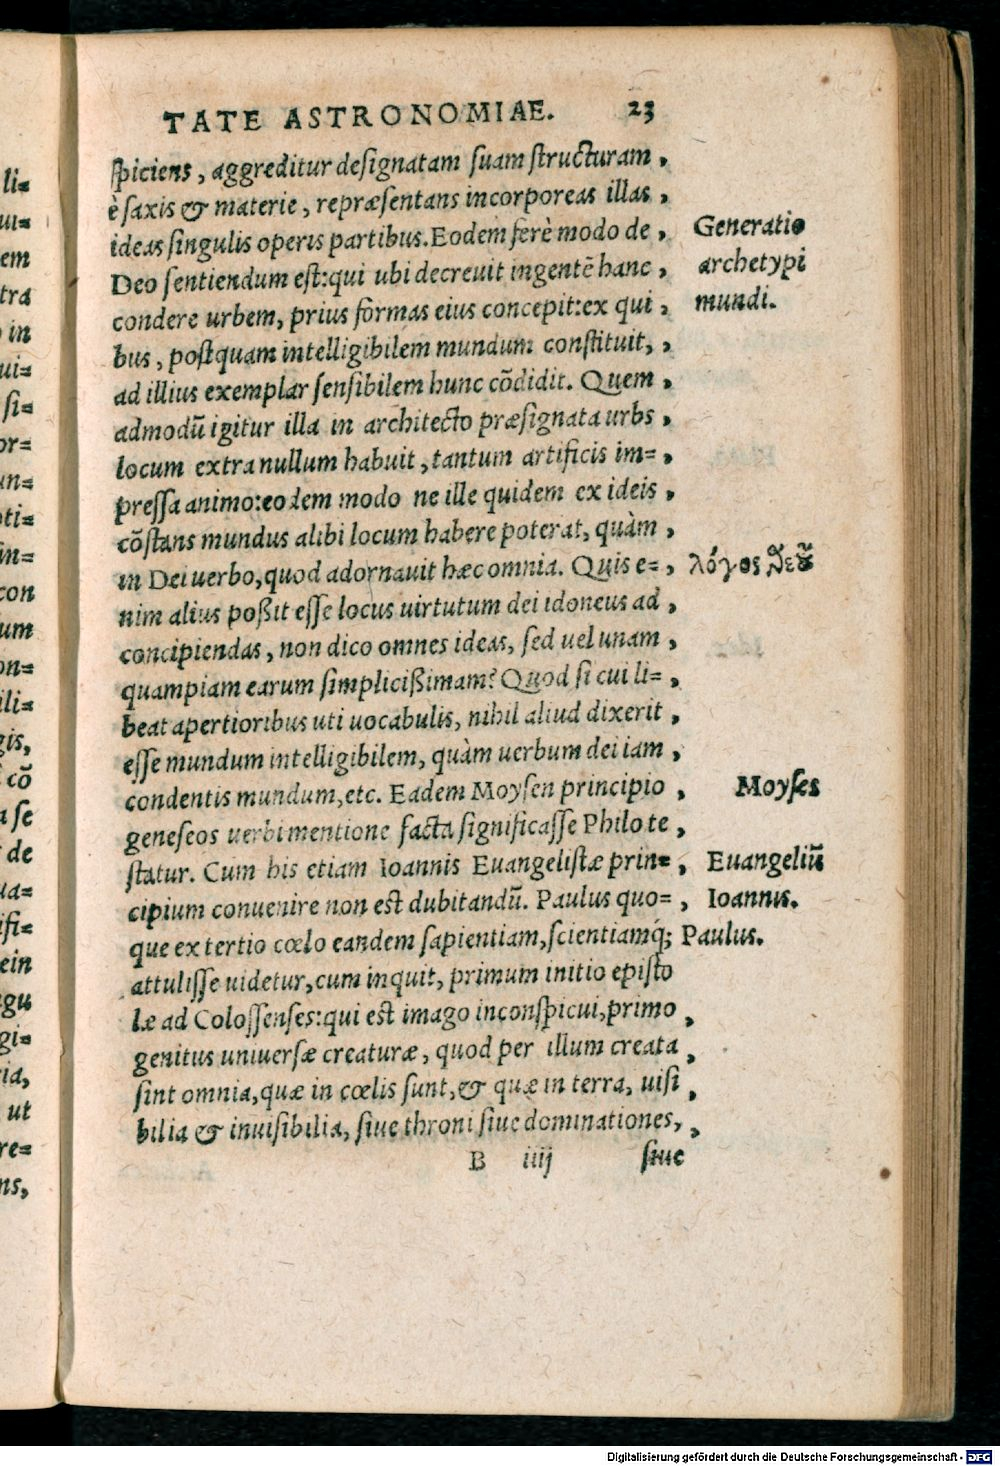 TATE ASTRONOMIAE. 23
spiciens, aggreditur designatam suam structuram,
è saxis & materie, repræsentans incorporeas illas,
ideas singulis operis partibus. Eodem ferè modo de,
Generatio
Deo sentiendum est: qui ubi decreuit ingentē hanc,
archetypi
condere urbem, prius formas eius concepit: ex qui,
mundi.
bus, postquam intelligibilem mundum constituit,,
ad illius exemplar sensibilem hunc cōdidit. Quem,
admodū igitur illa in architecto præsignata urbs,
locum extra nullum habuit, tantum artificis im=,
pressa animo: eodem modo ne ille quidem ex ideis,
cōstans mundus alibi locum habere poterat, quàm,
in Dei uerbo, quod adornauit hæc omnia. Quis e=,
λόγος θεοῦ
nim alius poßit esse locus uirtutum dei idoneus ad,
concipiendas, non dico omnes ideas, sed uel unam,
quampiam earum simplicißimam? Quod si cui li=,
beat apertioribus uti uocabulis, nihil aliud dixerit,
esse mundum intelligibilem, quàm uerbum dei iam,
condentis mundum, etc. Eadem Moysen principio,
Moyses
geneseos uerbi mentione facta significasse Philo te,
statur. Cum his etiam Ioannis Euangelistæ prin=,
Euangeliū
cipium conuenire non est dubitandū. Paulus quo=,
Ioannis.
que ex tertio cœlo eandem sapientiam, scientiamq́;
Paulus.
attulisse uidetur, cum inquit, primum initio episto
læ ad Colossenses: qui est imago inconspicui, primo,
genitus uniuersæ creaturæ, quod per illum creata,
sint omnia, quæ in cœlis sunt, & quæ in terra, uisi,
bilia & inuisibilia, siue throni siue dominationes,,
B iiij siue
li=
ui=
em
tra
in
ui=
si=
or=
un=
oti=
in=
con
um
on=
ili=
gis,
cō
a se
de
ua=
ifi=
ein
ngu
gi=
ria,
ut
re=
ns,
Digitalisierung gefördert durch die Deutsche Forschungsgemeinschaft - DFG